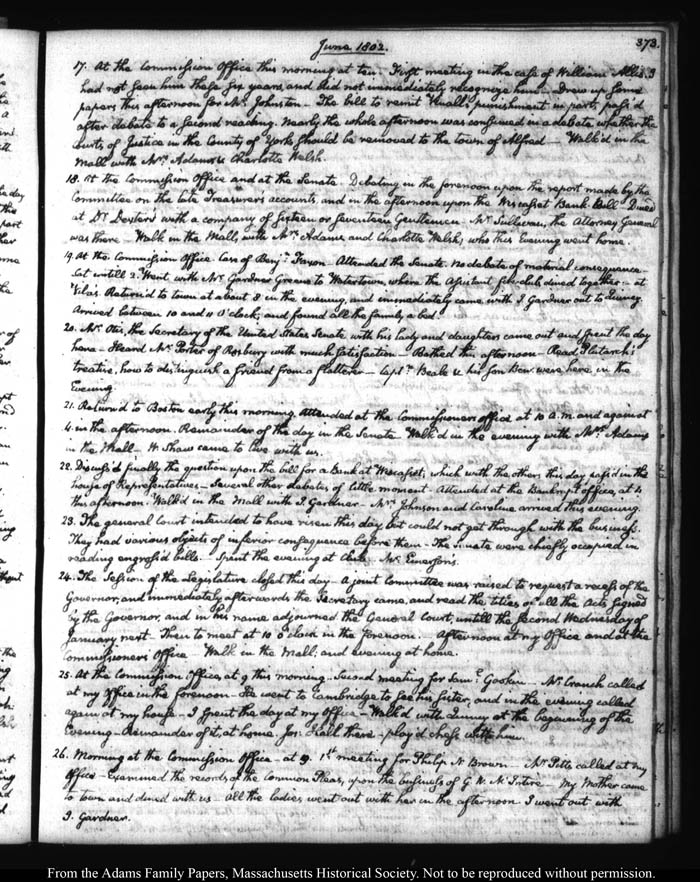 June 1802.
373.
17. At the Commission Office this morning at ten. First meeting in the case of William Allis. I
had not seen him these six years and did not immediately recognize him. Drew up some
papers this afternoon for Mr. Johnston. The bill to remit punishment in part, pass'd
after debate to a second reading. Nearly the whole afternoon was consumed in a debate whether the
Courts of Justice in the County of York should be removed to the town of Alfred — Walk'd in the
Mall with Mrs. Adams & Charlotte Welsh.
18. At the Commission Office and at the Senate. Debating in the forenoon upon the report made by the
Committee on the late Treasurer's accounts, and in the afternoon upon the Wiscasset Bank Bill. Dined
at Dr. Dexter's with a company of fifteen or seventeen Gentlemen. Mr. Sullivan, the Attorney General
was there — Walk in the Mall, with Mrs. Adams and Charlotte Welsh, who this Evening went home.
19. At the Commission Office. Case of Benj.n Faxon — Attended the Senate. No debate of material consequence —
Sat untill 2. Went with Mr. Gardner Greene to Watertown, where the fish-club, dined together — at
Vila's. Return'd to town at about 8 in the evening, and immediately came with J. Gardner out to Quincy.
Arrived between 10 and 11 O'clock, and found all the family a bed.
20. Mr. Otis, the Secretary of the United States Senate, with his lady and daughters came out and spent the day
here — Heard Mr. Porter of Roxbury with much satisfaction — Bathed this afternoon — Read Plutarch's
treatise, how to distinguish a friend from a flatterer — Capt.n Beale & his Son Ben: were here, in the
Evening.
21. Return'd to Boston early this morning. Attended at the Commissioners office at 10 A.M. and again at
4. in the afternoon. Remainder of the day in the Senate. Walk'd in the evening with Mrs. Adams
in the Mall — W. Shaw came to live with us.
22. Discuss'd finally the question upon the bill for a Bank at Wiscasset; which with the others this day pass'd in the
house of Representatives — Several other debates of little moment. Attended at the Bankrupt office, at 4
this afternoon. Walk'd in the Mall with J. Gardner — Mrs. Johnson and Caroline arrived this evening.
23. The general Court intended to have risen this day, but could not get through with the business.
They had various objects of inferior consequence before them. The Senate were chiefly occupied in
reading engross'd bills. — Spent the evening at club. Mr. Emerson's.
24. The Session of the Legislature closed this day — A joint Committee was raised to request a recess of the
Governor; and immediately afterwards the Secretary came, and read the titles of all the Acts signed
by the Governor, and in his name adjourned the General Court, untill the second Wednesday of
January next. Then to meet at 10 o'clock in the forenoon. Afternoon at my Office and at the
Commissioners' Office. Walk in the Mall; and evening at home.
25. At the Commission Office, at 9 this morning. Second meeting for Sam.l Gookin — Mr. Cranch called
at my Office in the forenoon — He went to Cambridge to see his sister, and in the evening called
again at my house. I spent the day at my Office — Walk'd with Quincy at the beginning of the
Evening — Remainder of it, at home. Jos: Hall there — play'd chess with him.
26. Morning at the Commission Office — at 9. 1st. meeting for Philip N Brown — Mr. Potts called at my
Office — Examined the records of the Common Pleas, upon the business of My Mother came
to town and dined with us — All the ladies went out with her in the afternoon. I went out with
J. Gardner.
From the Adams Family Papers, Massachusetts Historical Society. Not to be reproduced without permission.